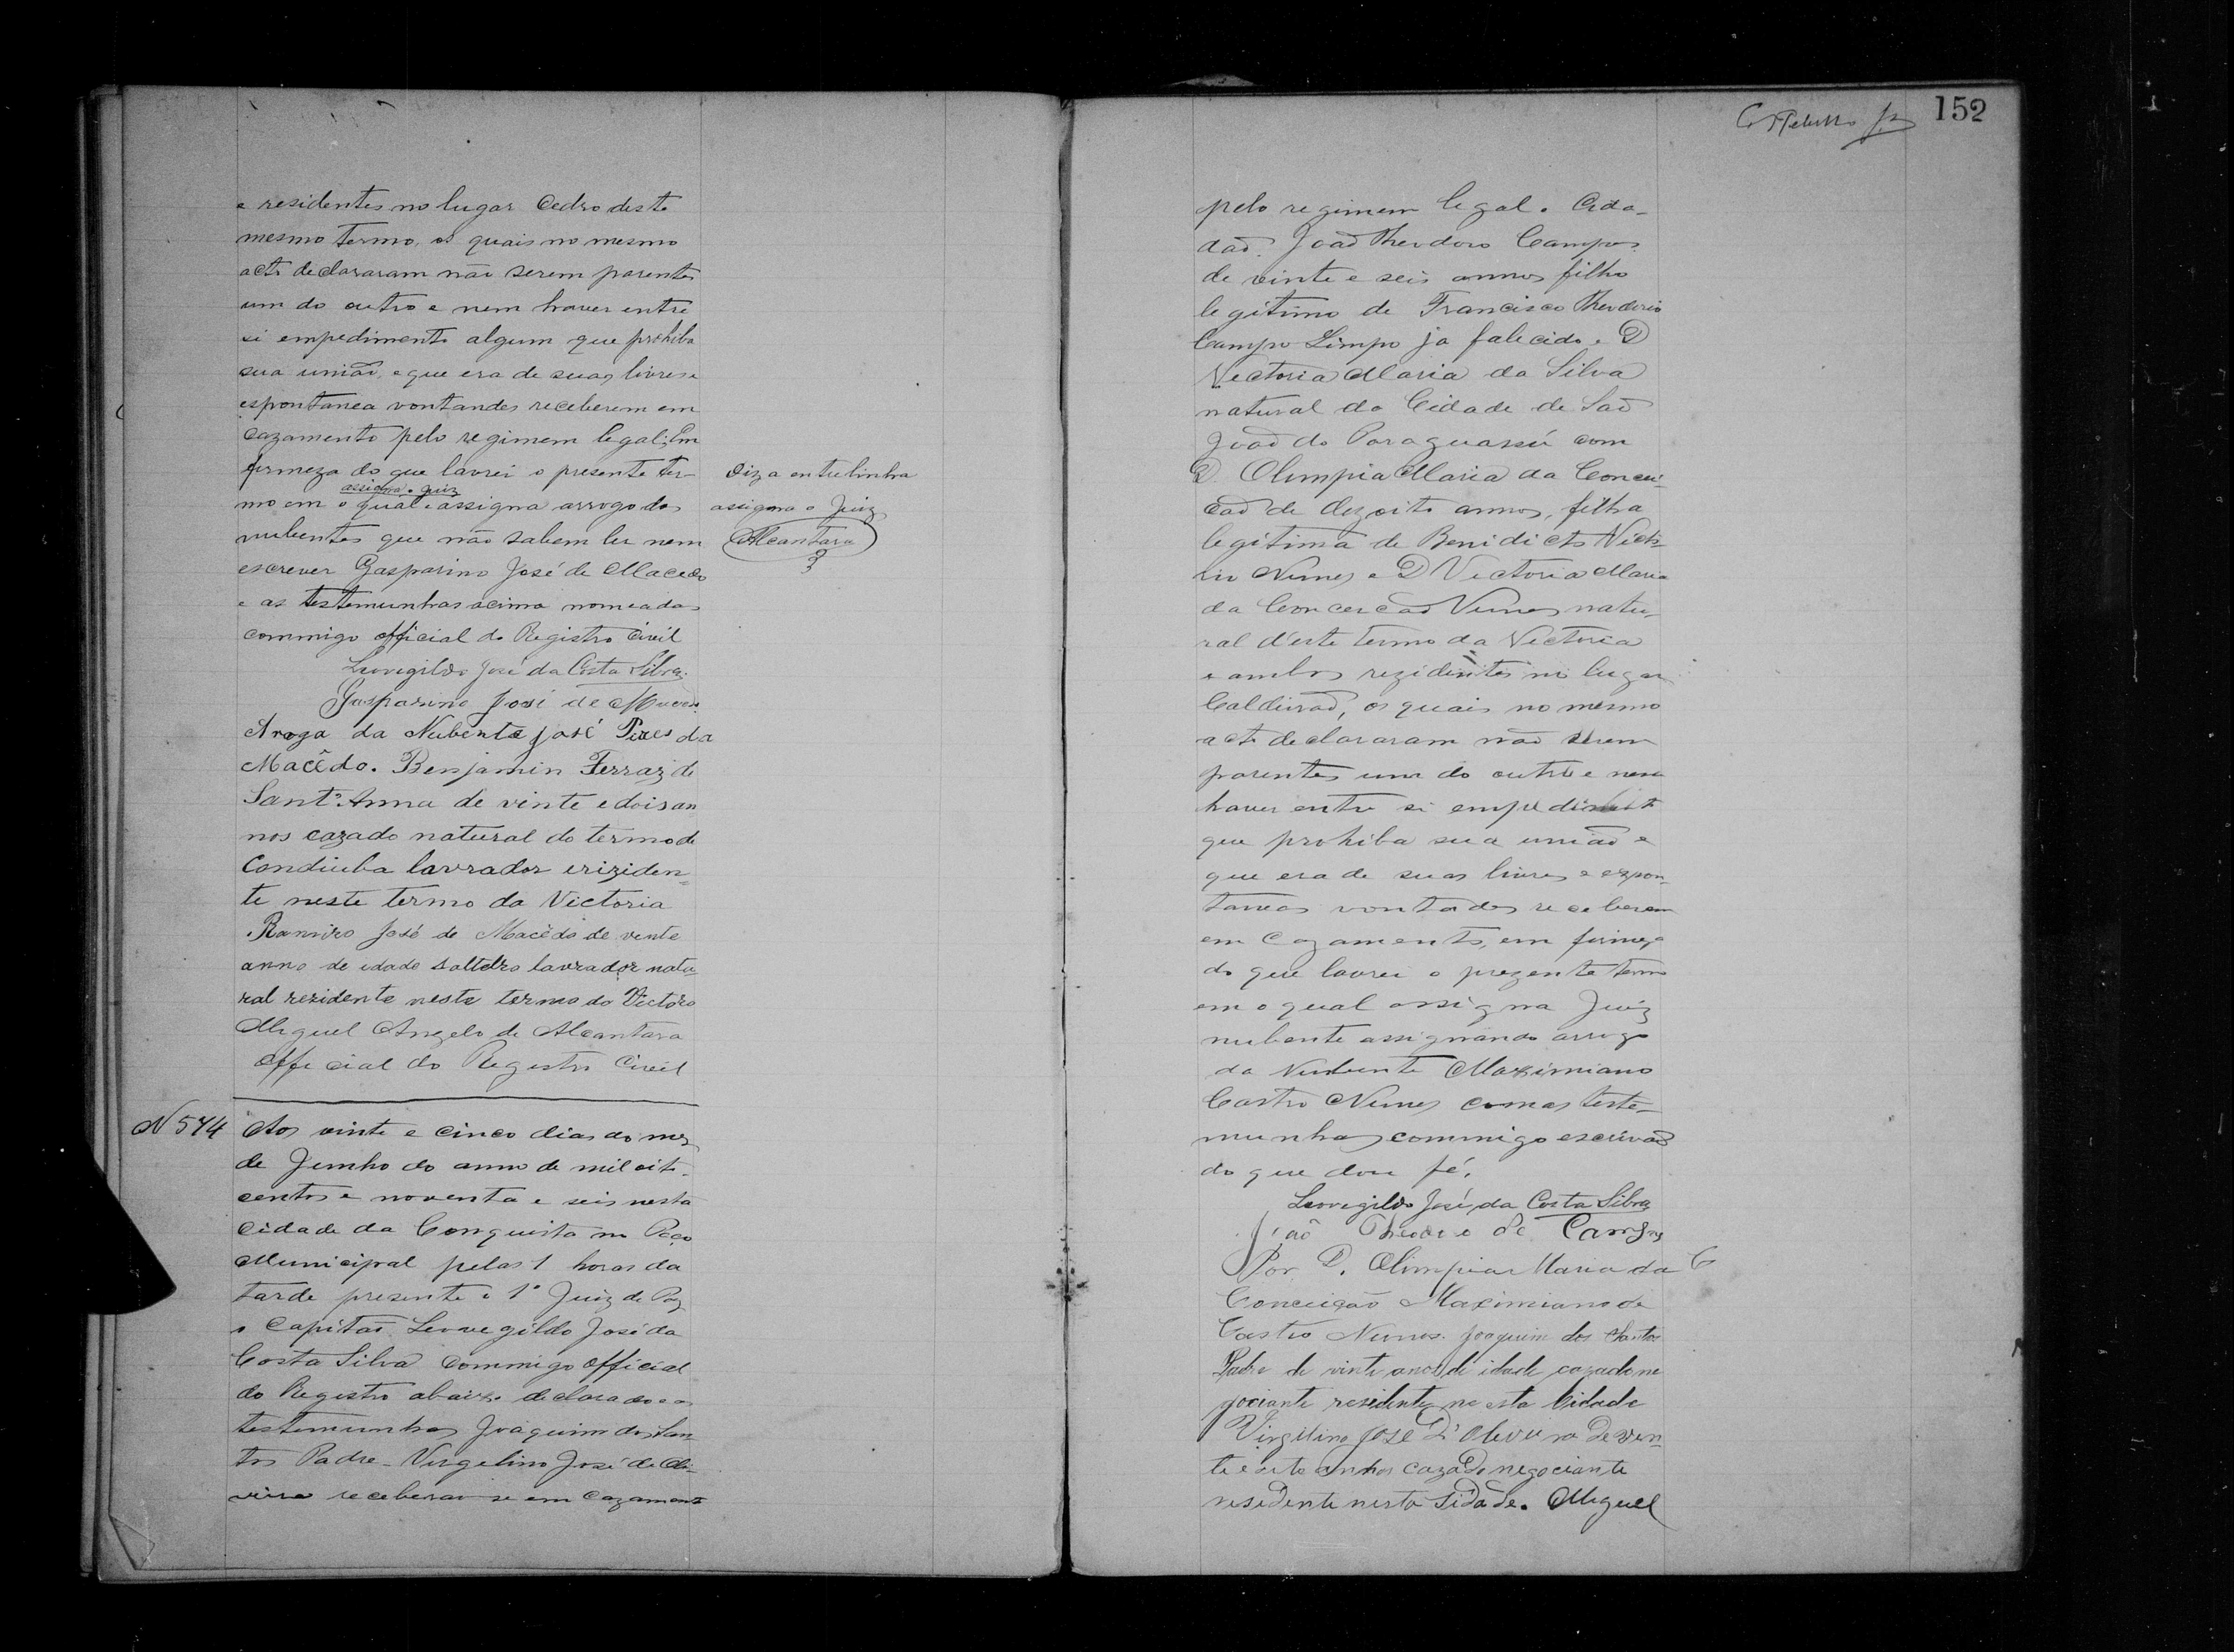 e residentes no lugar Cedro deste
mesmo termo, os quais no mesmo
acto declararam não serem parentes
um do outro e nem haver entre
si empedimento algum que prohiba
sua união, e que era de suas livres e
espontanea vontandes receberem em
cazamento pelo regimem legal; Em
firmeza do que lavrei o presente ter-
assigna o Juiz
mo em o qual e assigna arrogo dos
nubentes que não sabem ler nem
escrever Gasparino José de Macedo
e as testemunhas acima nomeadas
commigo official do Registro Civil
Leovigildo José da Costa Silva.
Gasparino José de Macedo
Aroga da Nubente José Pires da
Macêdo. Benjamin Ferraz de
Sant'Anna de vinte e dois an
nos cazado natural do termo de
Condeuba lavrador e riziden=
te neste termo da Victoria
Ramiro José de Macêdo de vinte
anno de idade solteiro lavrador natu-
ral rezidente neste termo da Victoria
Miguel Angelo de Alcantara
Official do Registro Civil
Diz a entrelinha
assigna o Juiz
Alcantara
N 574
Aos vinte e cinco dias do mez
de Junho do anno de mil oito-
centos e noventa e seis nesta
Cidade da Conquista no Paço
Municipal pelas 1 horas da
tarde presente o 1º Juiz de Paz
o Capitaõ Leovegildo José da
Costa Silva commigo Official
do Registro abaixo declarado e as
testemunhas Joaquim dos San
tos Padre - Virgelino José de Oli-
veira receberaõ se em cazamento
152
pelo regimem legal. Cida-
daõ João Theodoro Campos
de vinte e seis annos filho
legitimo de Francisco Theodorio
Campo Limpo ja falecido e D
Victoria Maria da Silva
natural da Cidade de Saõ
Joaõ do Paraguassú com
D. Olimpia Maria da Concei-
caõ de dezoito annos, filha
legitima de Benidicto
Nunes e D Victoria Maria
da Conceicaõ Nunes natu-
ral d'este termo da Victoria
e ambos rezidentes no lugar
Caldeiraõ, os quais no mesmo
acto declararam naõ serem
parentes um do outro e nem
haver entre si empedimento
que prohiba sua uniaõ e
que era de suas livres e espon-
taneas vontades receberem
em Cazamento, em firmeza
do que lavrei o prezente termo
em o qual assigna Juiz
nubente assignando arrogo
da Nubente Maximiano
Castro Nunes com as teste-
munhas commigo escrivaõ
do que dou fé.
Leovegildo José da Costa Silva
João Theodoro de Campos
Por D. Olimpia Maria da C
Conceição Maximiano de
Castro Nunes. Joaquim dos Santos
Padre de vinte anos de idade cazado ne
gociante residente nesta Cidade
Virgilino José D'Oliveira de vin-
te e oito annos cazado negociante
residente nesta Sidade. Miguel